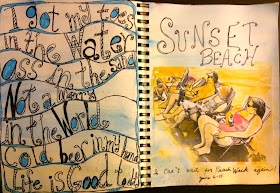 I got my toes
in the Water
Ass in the sand
Not a worry
in the World
Cold beer in my hand
Life is Good today
SUNSET
BEACH
I can't wait for Beach Week again!